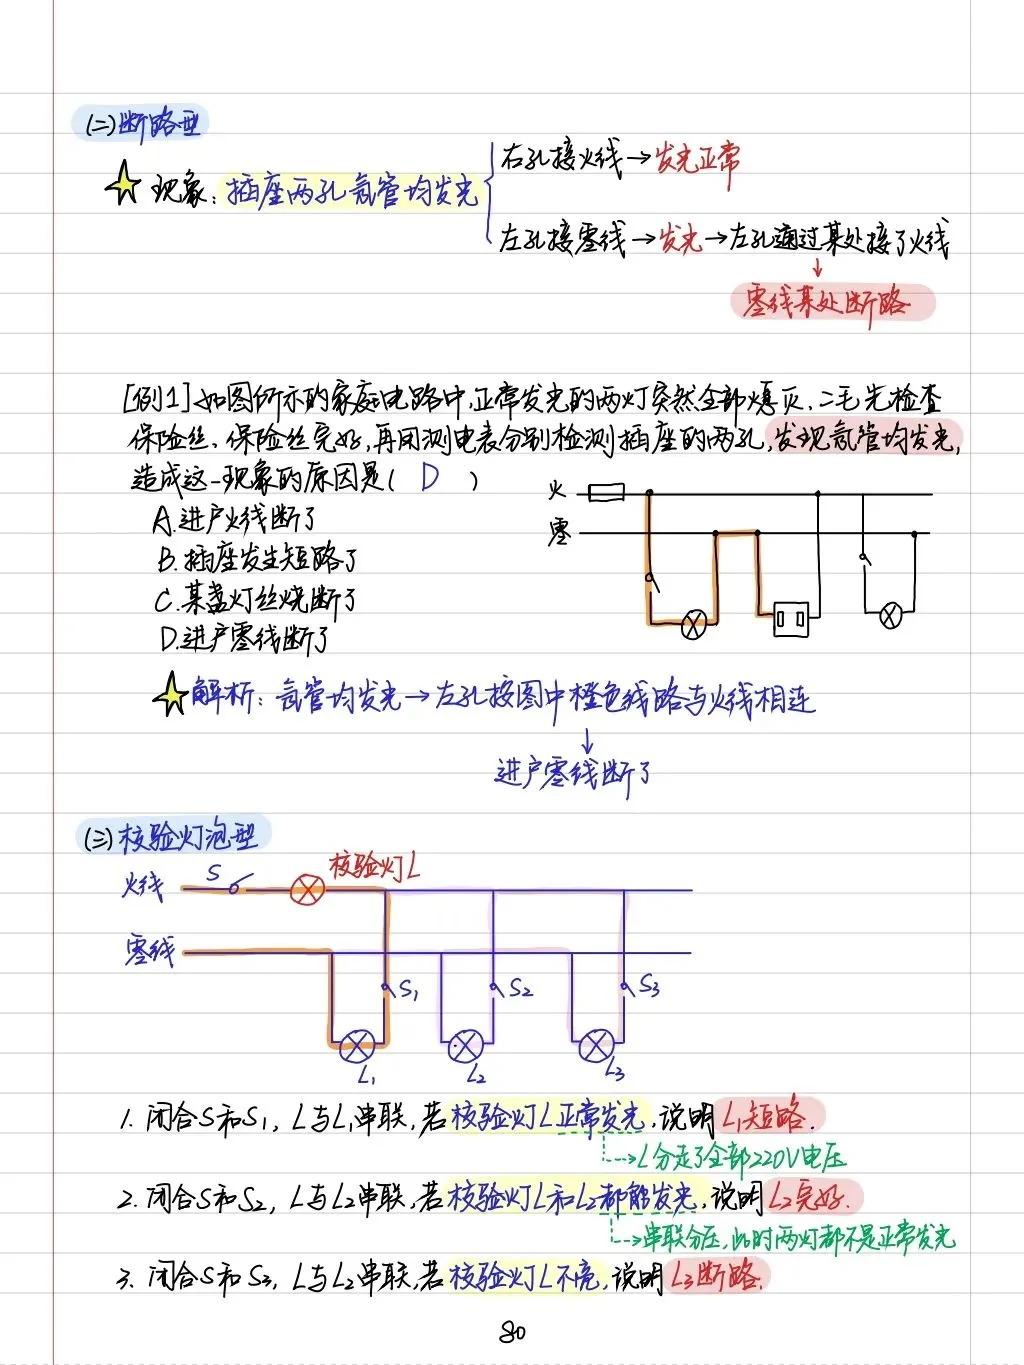 (二)断路型
右孔接火线→发光正常
现象:插座两孔氖管均发光
左孔接零线→发光→左孔通过某处接了火线
零线某处断路
[例1]如图所示的家庭电路中,正常发光的两灯突然全部熄灭,二毛先检查
保险丝,保险丝完好,再用测电表分别检测插座的两孔,发现氖管均发光,
造成这一现象的原因是( D )
A.进户火线断了
B.插座发生短路了
C.某盏灯丝烧断了
D.进户零线断了
火
零
解析:氖管均发光→左孔按图中橙色线路与火线相连
进户零线断了
(三)校验灯泡型
校验灯L
火线 S
零线
S1 S2 S3
L1 L2 L3
1. 闭合S和S1,L与L1串联,若校验灯L正常发光,说明L1短路.
→L分走了全部220V电压
2. 闭合S和S2,L与L2串联,若校验灯L和L2都能发光,说明L2完好.
→串联分压,此时两灯都不是正常发光
3. 闭合S和S3,L与L2串联,若校验灯L不亮,说明L3断路.
80